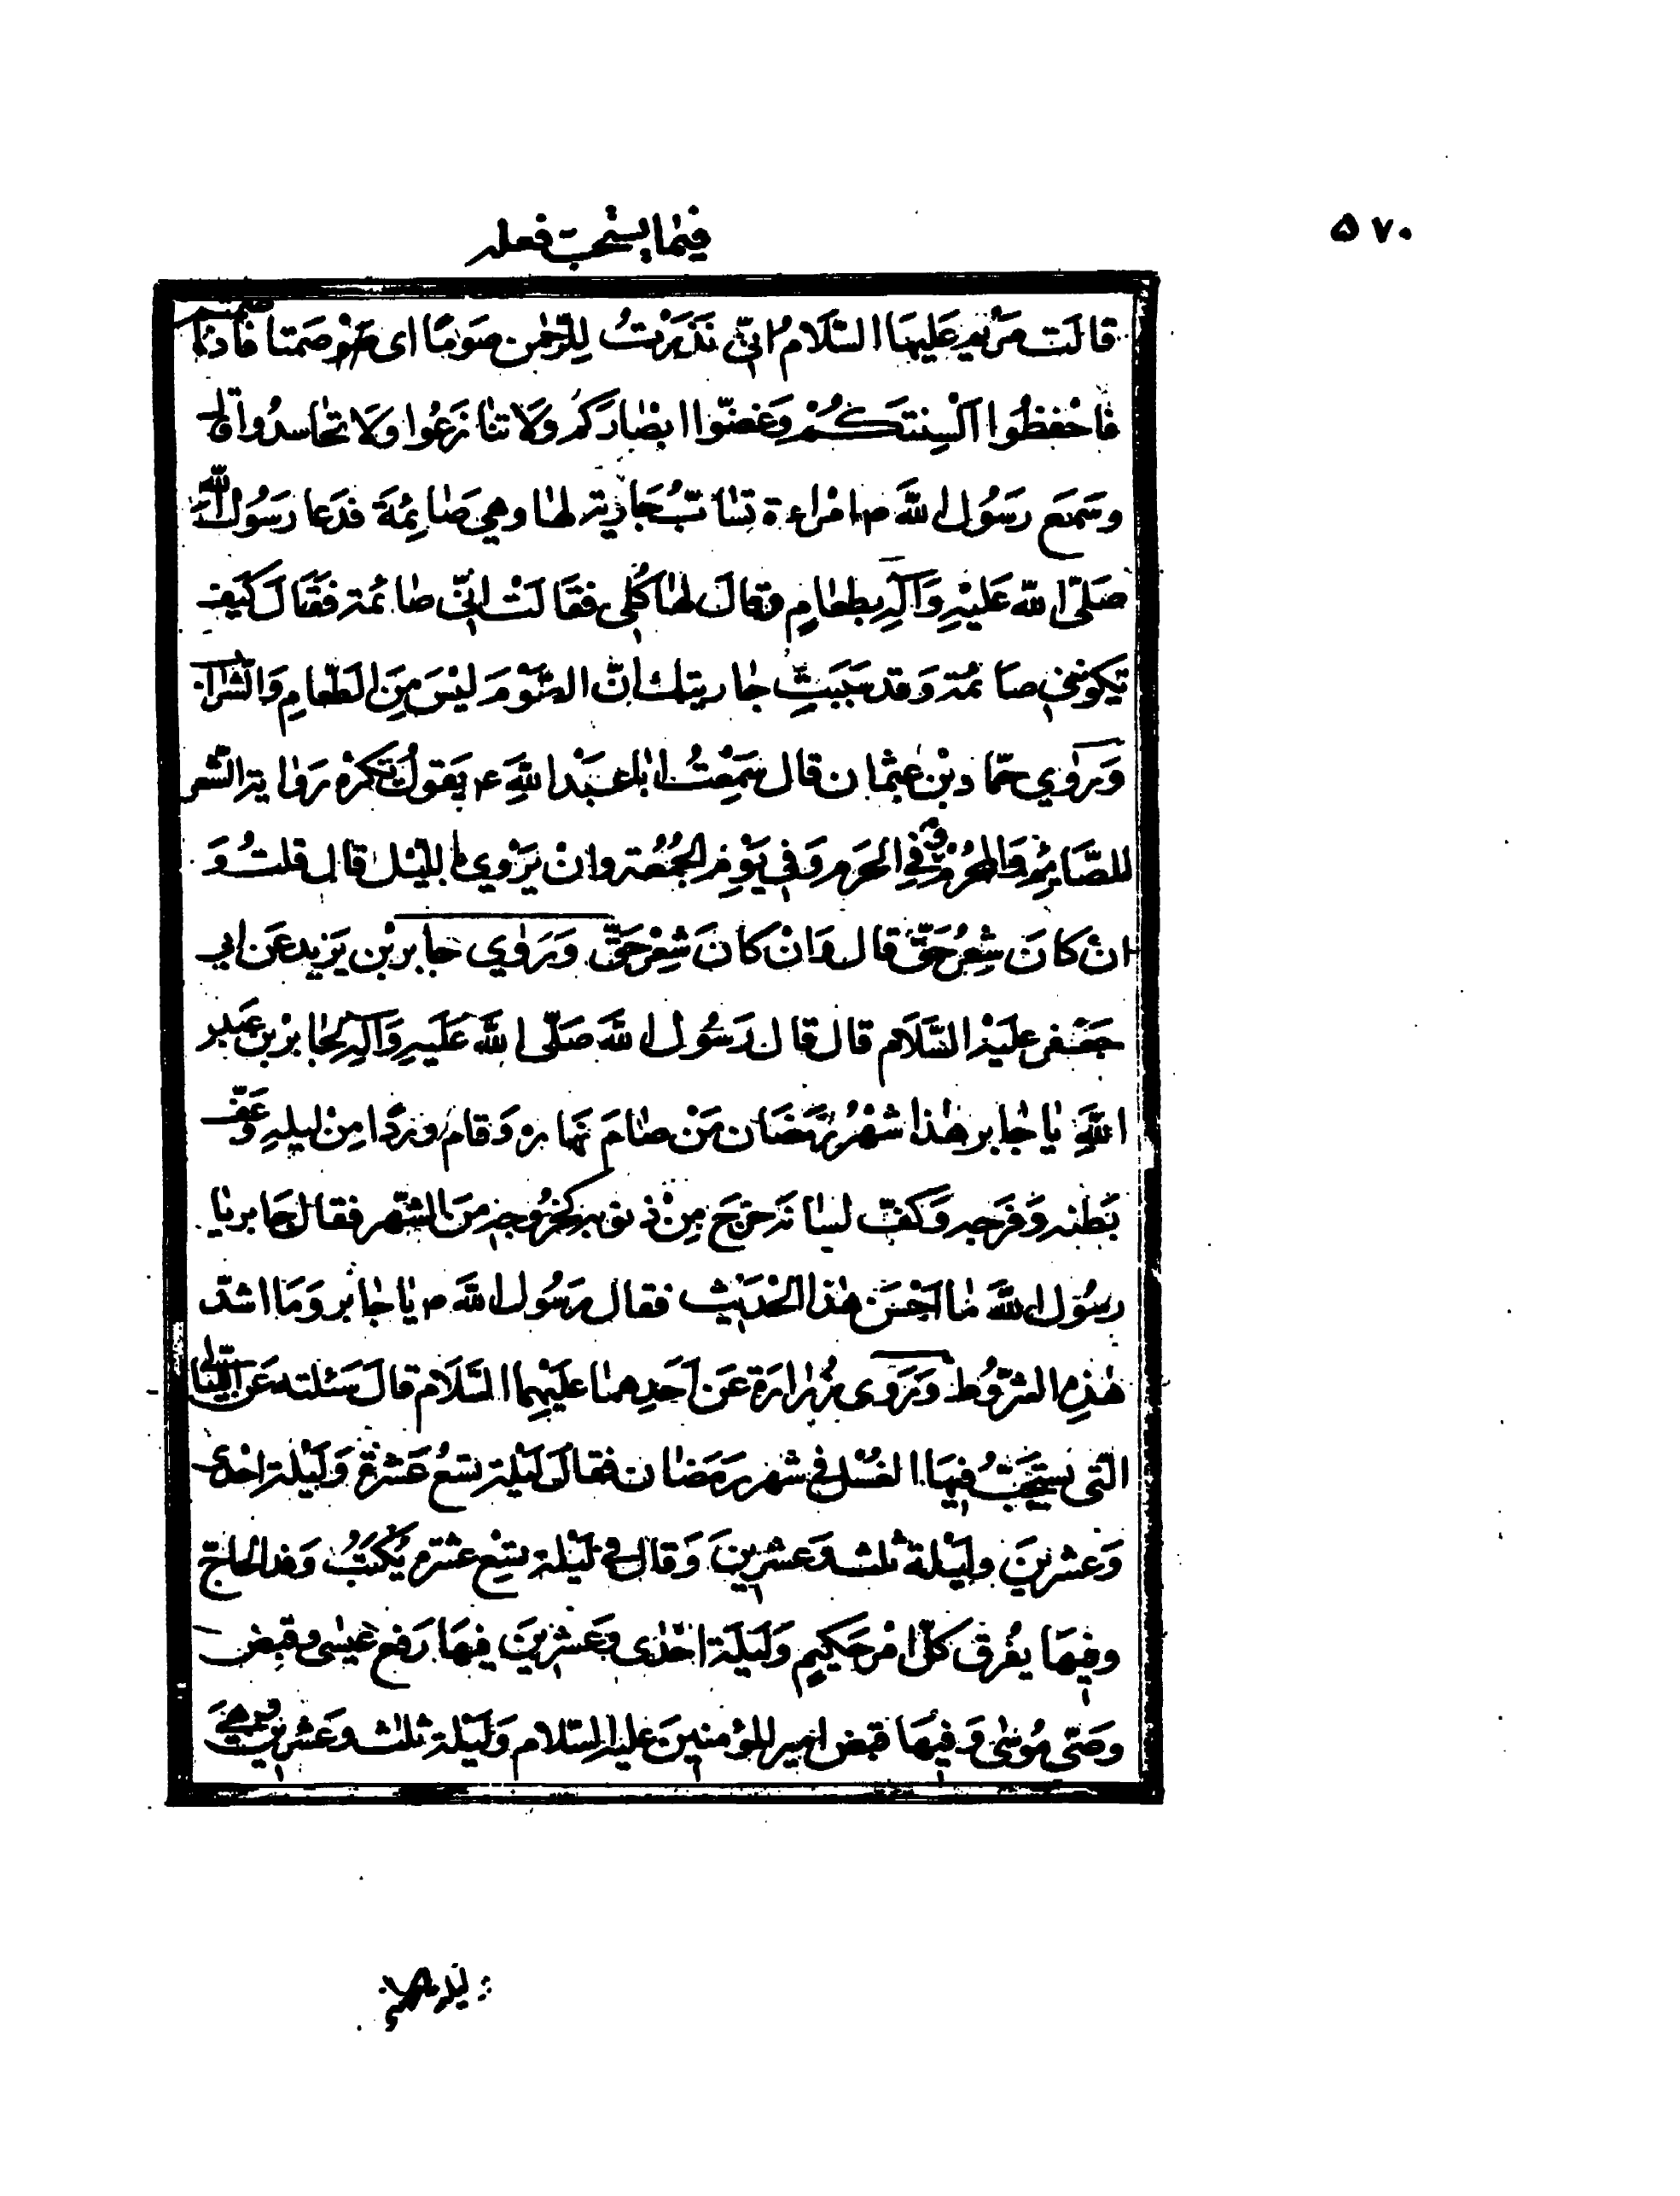 ۵۷۰
فيما يستحب فعله
قالَت مَرْيم عَلَيهَا السَّلَامُ اِنّي نَذَرْتُ لِلرَّحْمٰنِ صَوْمًا اى صمتا فاذا صمتم
فَاحْفَظُوا اَلْسِنَتَكُمْ وَغضّوا ابْصٰارَكمْ وَلا تنٰازَعُوا وَلا تحٰاسدُوا قال
وسَمَع رَسُول اللهَ ص امْراءة تسٰابّ جَاريَة لهٰا وهي صٰائِمَة فدَعا رسَوُل الله
صَلّى الله عَلَيْهِ وَآلِهِ بِطعٰامٍ وقالَ لهٰا كُلِى فقَالَتْ اِنّي صٰائمة فقَالَ كَيَف
تكونين صٰائمة وَقد سَبَبَتِ جٰاريتك اِنّ الصَّوْمَ ليْسَ مِنَ الطَّعامِ وَالشَرٰاب
وَرَوٰي حمّاد بْن عثمٰان قال سَمِعْتُ ابٰا عَبْد اللهِ ع يَقولُ تكرَهْ رَوٰاية الشّعر
للصَّائِمِ وَالمحُرْمِ وَفي الحَرم وَفي يَوْمِ الجُمُعَة وانْ يَرْوي بالليْل قال قلتُ وَ
انْ كانَ شِعْرُ حَقٍّ قال وَانْ كانَ شِعْرَ حَقٍّ وَرَوٰي جابر بْن يَزيد عَن ابي
جَعْفر عليْه السَّلَام قال قال رَسُول اللهَ صَلّى اللهَ عَلَيهِ وَآلِهِ لجٰابر بْن عَبد
اللهِ يٰا جٰابر هٰذا شَهْرُ رَمَضَان مَنْ صٰامَ نهَاره وَقام وردًا مِنْ ليلهِ وَعَفّ
بَطنه وَفَرجه وَكفّ لسٰانَه خرَجَ مِنْ ذنوبه كخُروجه مَنَ الشّهر فقال جَابر يٰا
رسُول اللهَ مٰا اَحْسَن هٰذا الحَديْث فقال رَسُول اللهَ ص يٰا جٰابر وَمَا اشدّ
هٰذِه الشرُّوُط وَرَوى زُرٰارَة عَن اَحَدِهمٰا عليْهِما السَّلَام قالَ سَئلته عَن اللَّيٰالى
الّتى يسْتَحَبُّ فيهَا الغسْل في شهر رَمَضٰان فقال لَيْلة تسْعُ عَشْرةَ وَلَيْلَة احْدى
وَعشرينَ وليْلة ثلٰث وَعشرينَ وَقال في ليْلة تسْع عشرة يُكتَبُ وَفد الحاجّ
وفيهَا يفُرق كلّ امْر حَكيمٍ وَلَيلَة احْدٰى وَعَشرينَ فيهَا رَفع عيسٰى وقبِض
وصَىّ مُوسٰى وَفيهَا قبض امير المؤمنينَ عليْه السَّلام وَلَيْلة ثلٰث وعَشرينَ وَهيَ